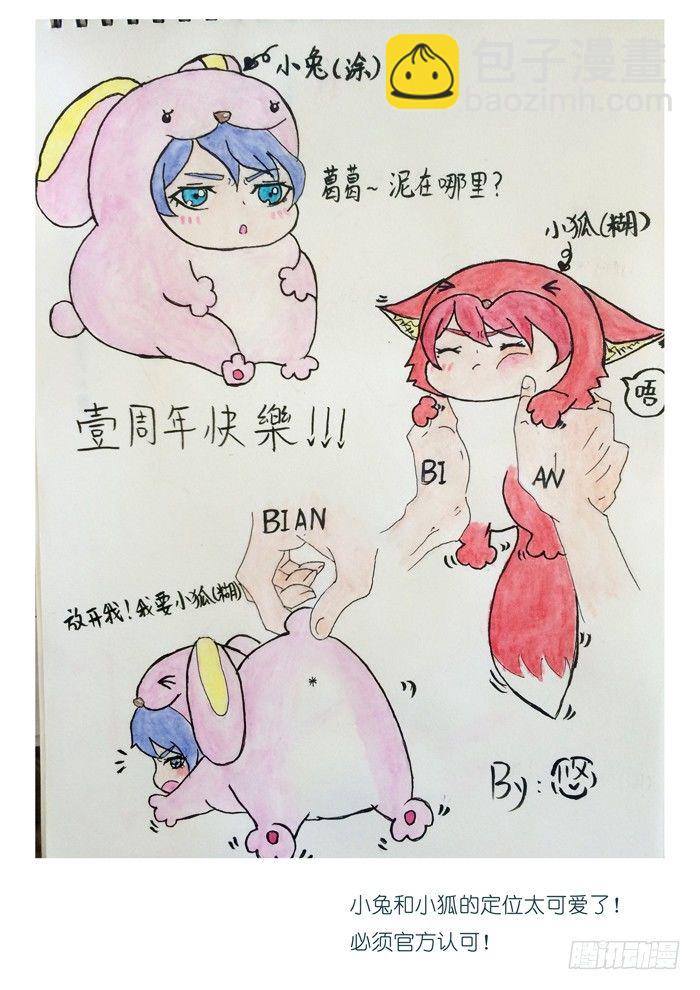 小兔(涂)
包子漫畫
baozimh.com
葛葛~泥在哪里?
小狐(糊)
唔
壹周年快樂!!!
BI
AN
BIAN
放开我!我要小狐(糊)
By:悠
小兔和小狐的定位太可爱了!
必须官方认可!
腾讯动漫